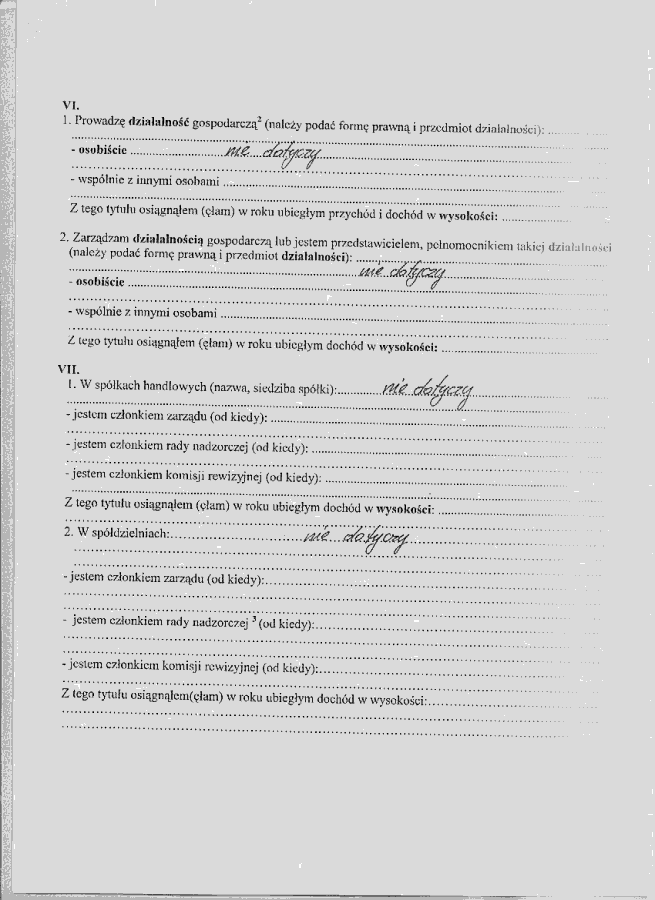 VI.
1. Prowadzę działalność gospodarczą² (należy podać formę prawną i przedmiot działalności): ............
..........................................................................................
- osobiście ........................ nie dotyczy ..........................................
..........................................................................................
- wspólnie z innymi osobami ..............................................................
..........................................................................................
Z tego tytułu osiągnąłem (ęłam) w roku ubiegłym przychód i dochód w wysokości: ............
2. Zarządzam działalnością gospodarczą lub jestem przedstawicielem, pełnomocnikiem takiej działalności
(należy podać formę prawną i przedmiot działalności): ....................................
.......................................................... nie dotyczy ....................
- osobiście ..............................................................................
..........................................................................................
- wspólnie z innymi osobami ..............................................................
..........................................................................................
Z tego tytułu osiągnąłem (ęłam) w roku ubiegłym dochód w wysokości: ......................
VII.
1. W spółkach handlowych (nazwa, siedziba spółki):.......... nie dotyczy ....................
..........................................................................................
- jestem członkiem zarządu (od kiedy): ...................................................
..........................................................................................
- jestem członkiem rady nadzorczej (od kiedy): ...........................................
..........................................................................................
- jestem członkiem komisji rewizyjnej (od kiedy): ........................................
..........................................................................................
Z tego tytułu osiągnąłem (ęłam) w roku ubiegłym dochód w wysokości: ......................
..........................................................................................
2. W spółdzielniach:.............................. nie dotyczy ..............................
..........................................................................................
..........................................................................................
- jestem członkiem zarządu (od kiedy):....................................................
..........................................................................................
..........................................................................................
- jestem członkiem rady nadzorczej ³ (od kiedy):..........................................
..........................................................................................
..........................................................................................
- jestem członkiem komisji rewizyjnej (od kiedy):.........................................
..........................................................................................
Z tego tytułu osiągnąłem(ęłam) w roku ubiegłym dochód w wysokości:........................
..........................................................................................
..........................................................................................